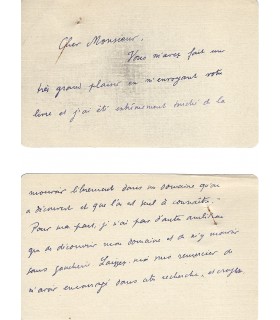 Cher Monsieur,
Vous m'avez fait un
très grand plaisir en m'envoyant votre
livre et j'ai été extrêmement touché de la
mouvoir librement dans un domaine qu'on
a découvert et que l'on est seul à connaître.
Pour ma part, je n'ai pas d'autre ambition
que de découvrir mon domaine et de m'y mouvoir
sans gaucherie. Laissez-moi vous remercier de
m'avoir encouragé dans cette recherche, et croyez